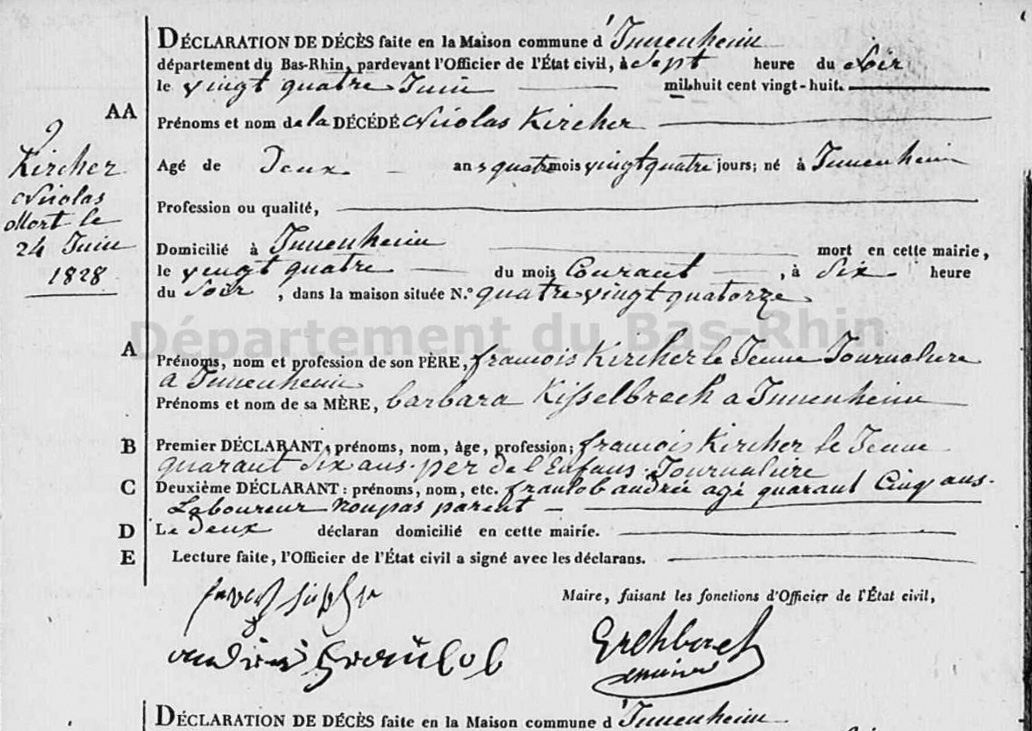 DÉCLARATION DE DÉCÈS faite en la Maison commune d'Innenheim
département du Bas-Rhin, pardevant l'Officier de l'État civil, à Sept heure du Soir
le vingt quatre Juin mil huit cent vingt-huit.
AA
Prénoms et nom de la DÉCÉDÉ Nicolas Kircher
9
Kircher
Nicolas
Mort le
24 Juin
1828
Agé de Deux ans quatre mois vingt quatre jours; né à Innenheim
Profession ou qualité,
Domicilié à Innenheim mort en cette mairie,
le vingt quatre du mois Courant, à Six heure
du Soir, dans la maison située N.° quatre vingt quatorze
Département du Bas-Rhin
A
Prénoms, nom et profession de son PÈRE, francois Kircher le Jeune Journalure
a Innenheim
Prénoms et nom de sa MÈRE, barbara Kisselbrech a Innenheim
B
Premier DÉCLARANT, prénoms, nom, âge, profession; francois Kircher le Jeune
quarant Six ans. per de l'Enfans. Journalure
C
Deuxième DÉCLARANT: prénoms, nom, etc. fraulob andrée agé quarant Cinq ans.
Laboureur noupas parent
D
Le Deux déclaran domicilié en cette mairie.
E
Lecture faite, l'Officier de l'État civil a signé avec les déclarans.
Maire, faisant les fonctions d'Officier de l'État civil,
DÉCLARATION DE DÉCÈS faite en la Maison commune d'Innenheim